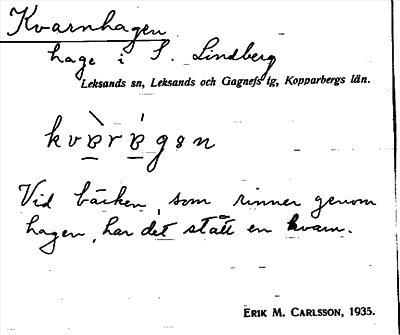 Kvarnhagen
hage i S. Lindberg
Leksands sn, Leksands och Gagnefs tg, Kopparbergs län.
kvʙ̀rʙ́gən
Vid bäcken, som rinner genom
hagen, har det stått en kvarn.
ERIK M. CARLSSON, 1935.